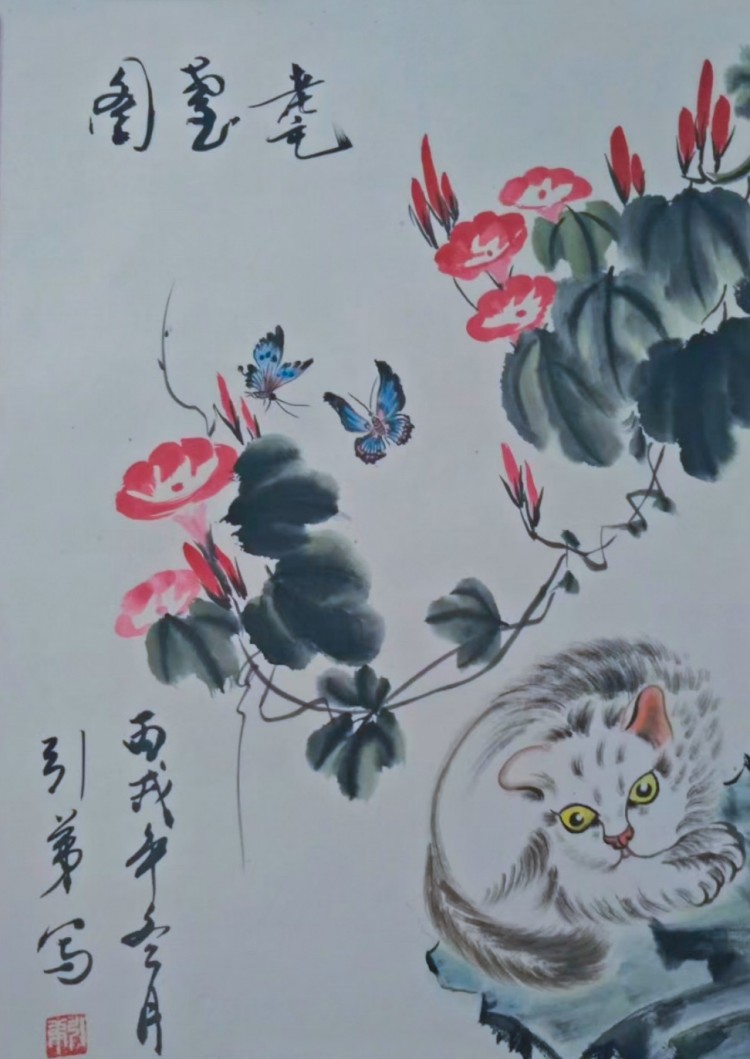 耄耋图
丙戌年冬月
引弟写
引弟